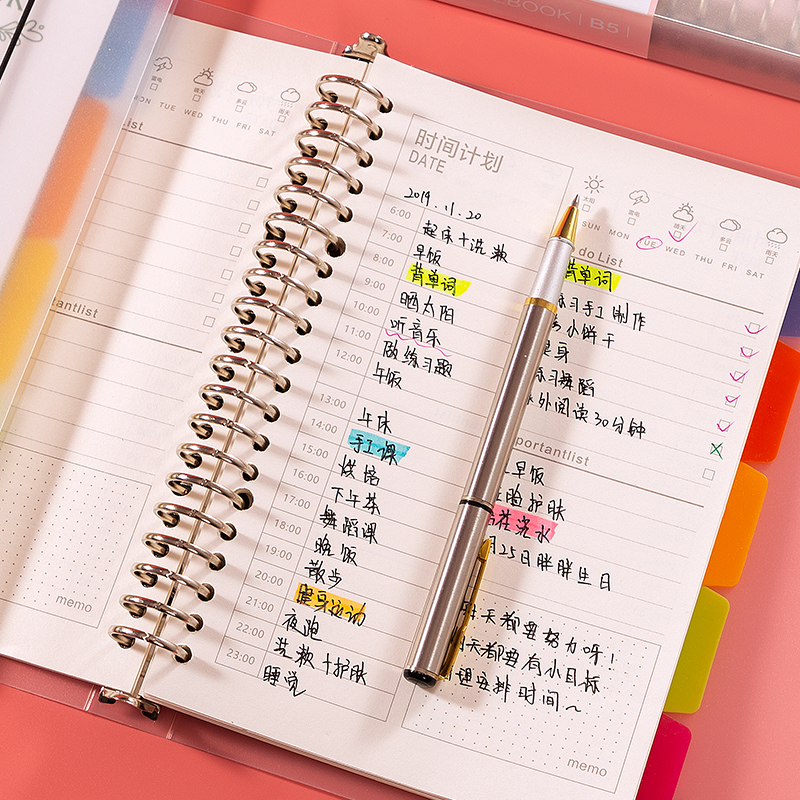 NOTEBOOK | B5 |
雷电
晴天
多云
雨天
MON TUE WED THU FRI SAT
List
antlist
memo
时间计划
DATE
2019.11.20
6:00
起床+洗漱
7:00
早饭
8:00
背单词
9:00
晒太阳
10:00
听音乐
11:00
做练习题
12:00
午饭
13:00
午休
14:00
手工课
15:00
烘焙
16:00
下午茶
17:00
舞蹈课
18:00
晚饭
19:00
散步
20:00
健身运动
21:00
夜跑
22:00
洗漱+护肤
23:00
睡觉
太阳
雷电
晴天
多云
雨天
SUN MON TUE WED THU FRI SAT
do List
背单词
练习手工制作
小饼干
健身
练习舞蹈
外阅读30分钟
portantlist
早饭
脸护肤
浇水
月25日胖胖生日
天都要努力呀!
天都要有小目标
理安排时间~
memo